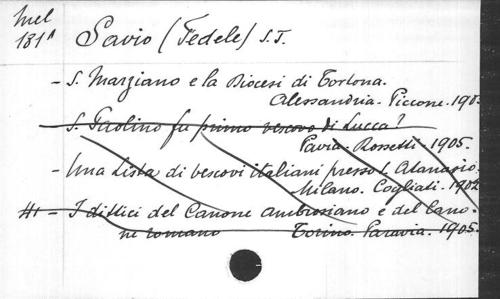 Mel
181A
Savio (Fedele) S.J.
- S. Marziano e la Diocesi di Tortona.
Alessandria. Piccone. 190
S. Paolino fu primo vescovo di Lucca?
Pavia. Rossetti. 1905.
- Una lista di vescovi italiani presso S. Atanasio.
Milano. Cogliati. 1902
- I dittici del Canone ambrosiano e del Cano-
ne romano Torino. Paravia. 1905.